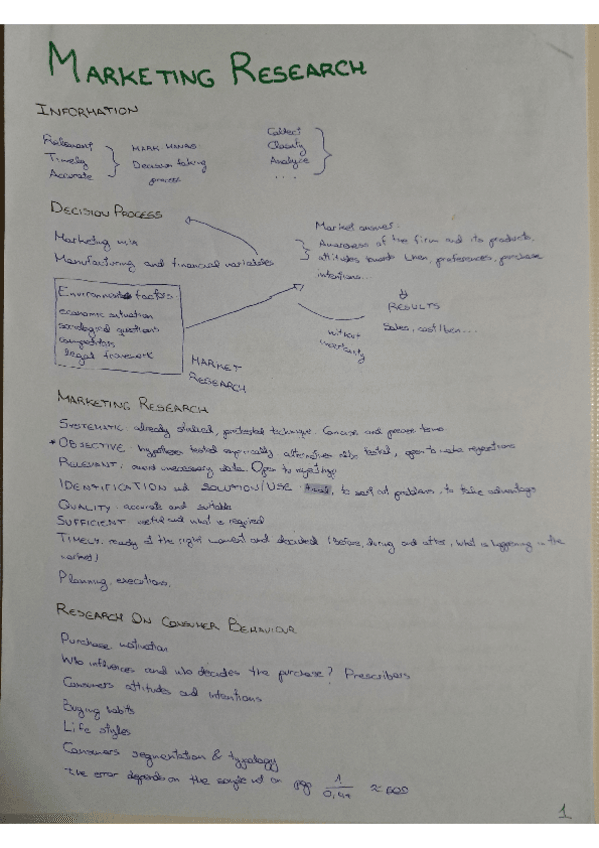 MARKETING RESEARCH
INFORMATION
Relevant
Timely
Accurate
MARK. MANAG.
Decision taking
process
Collect
Classify
Analyze
...
DECISION PROCESS
Marketing mix
Manufacturing and financial variables
Environment factors:
economic situation
sociological questions
competitors
legal framework
MARKET
RESEARCH
Market answer:
Awareness of the firm and its products,
attitudes towards them, preferences, purchase
intentions...
RESULTS
Sales, cost/ben...
without
uncertainty
MARKETING RESEARCH
SYSTEMATIC: already studied, pretested technique. Concise and proven
* OBJECTIVE: hypotheses tested empirically, alternatives also tested, open to make
RELEVANT: avoid unnecessary data. Open to
IDENTIFICATION and SOLUTION/USE: to sort out problems, to take advantage
QUALITY: accurate and suitable
SUFFICIENT: useful and what is required
TIMELY: ready at the right moment and decided (before, during and after, what is happening in the
market)
Planning, executions.
RESEARCH ON CONSUMER BEHAVIOUR
Purchase motivation
Who influences and who decides the purchase? Prescribers
Consumers attitudes and intentions
Buying habits
Life styles
Consumers segmentation & typology
The error depends on the sample not on pop 1
1